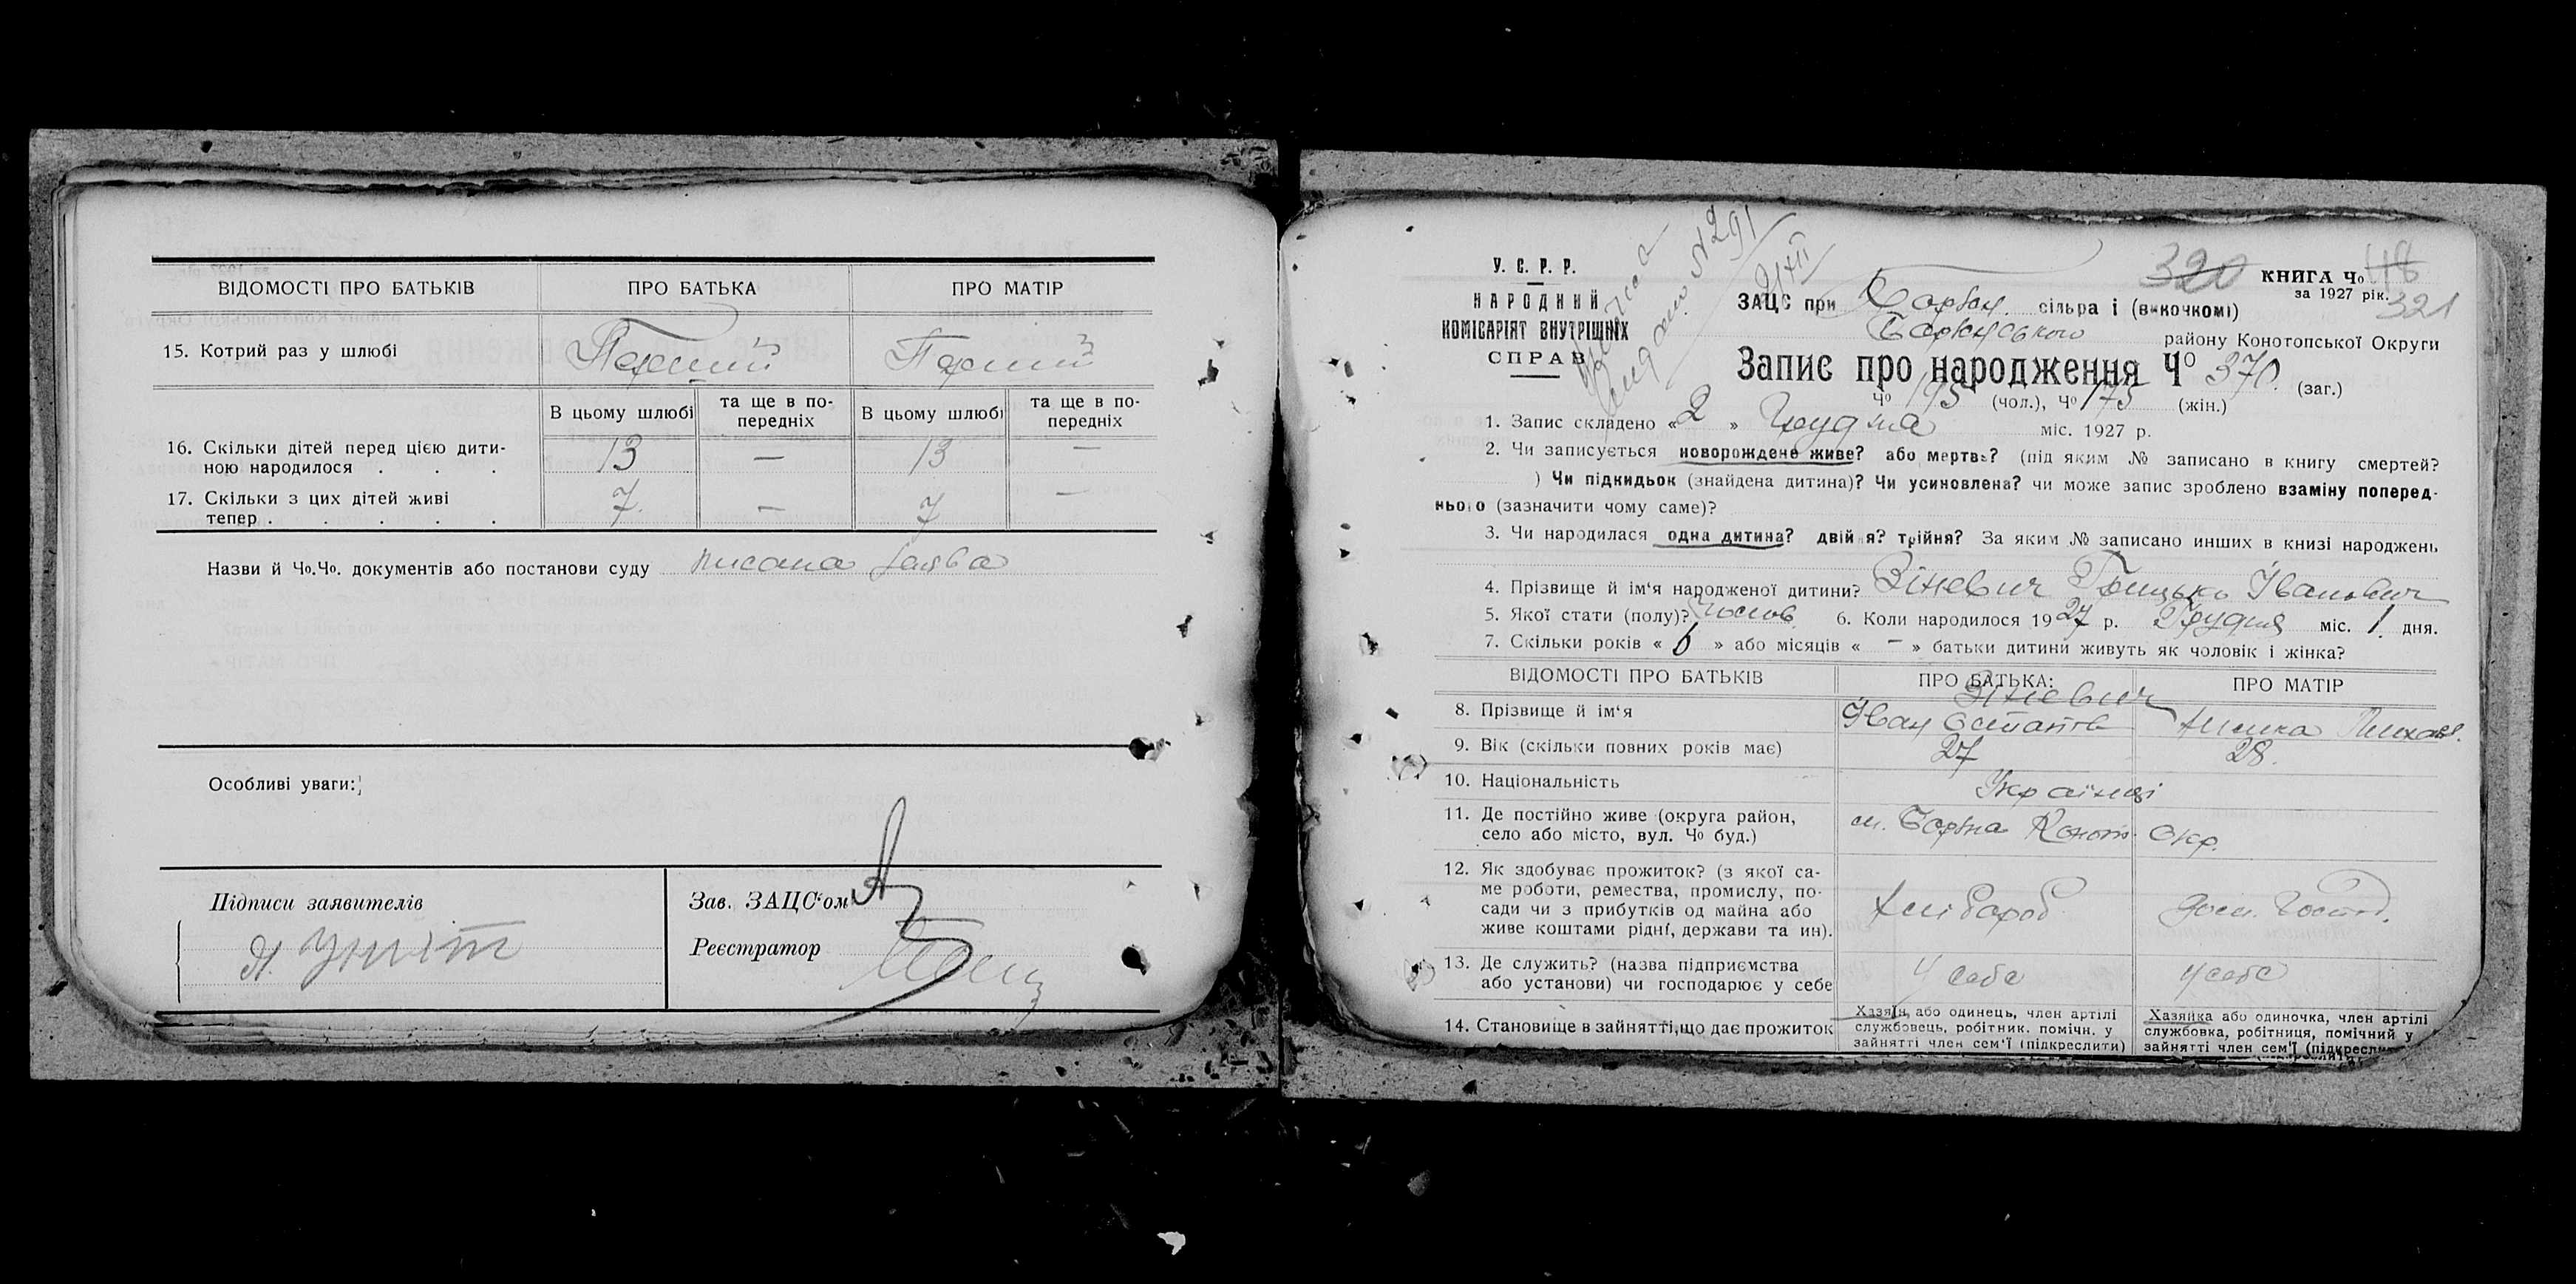 ВІДОМОСТІ ПРО БАТЬКІВ ПРО БАТЬКА ПРО МАТІР
15. Котрий раз у шлюбі Перший Перший
В цьому шлюбі та ще в попередніх В цьому шлюбі та ще в попередніх
16. Скільки дітей перед цією дити-
ною народилося . . . 13 — 13 —
17. Скільки з цих дітей живі
тепер . . . . . 7 — 7 —
Назви й Чо.Чо. документів або постанови суду писана заява
Особливі уваги:
Підписи заявителів
Зав. ЗАЦС‘ом
Реєстратор
320 КНИГА Чо 48
за 1927 рік. 321
У. С. Р. Р.
НАРОДНИЙ
КОМІСАРІЯТ ВНУТРІШНІХ
СПРАВ
№ 291
2/XII
ЗАЦС при Борзен. сільраді (викочкомі)
району Конотопської Округи
Запис про народження Чо 370 (заг.)
Чо 195 (чол.), Чо 175 (жін.)
1. Запис складено « 2 » Грудня міс. 1927 р.
2. Чи записується новорождене живе? або мертве? (під яким № записано в книгу смертей?
) Чи підкидьок (знайдена дитина)? Чи усиновлена? чи може запис зроблено взаміну поперед-
нього (зазначити чому саме)?
3. Чи народилася одна дитина? двійня? трійня? За яким № записано инших в книзі народжень
4. Прізвище й ім‘я народженої дитини? Зіневич Грицько Іванович
5. Якої стати (полу)? чолов. 6. Коли народилося 1927 р. Грудня міс. 1 дня.
7. Скільки років « 6 » або місяців « – » батьки дитини живуть як чоловік і жінка?
ВІДОМОСТІ ПРО БАТЬКІВ ПРО БАТЬКА: ПРО МАТІР
8. Прізвище й ім‘я Зіневич
Іван Остапов
9. Вік (скільки повних років має) 27 28.
10. Національність Українці
11. Де постійно живе (округа район,
село або місто, вул. Чо буд.) м. Борзна Коноп. Окр.
12. Як здобуває прожиток? (з якої са-
ме роботи, ремества, промислу, по-
сади чи з прибутків од майна або
живе коштами рідні, держави та ин). хлібороб дом. господ.
13. Де служить? (назва підприємства
або установи) чи господарює у себе у себе у себе
14. Становище в зайнятті,що дає прожиток
Хазяїн, або одинець, член артілі
службовець, робітник. помічн. у
зайнятті член сем‘ї (підкреслити)
Хазяйка або одиночка, член артілі
службовка, робітниця, помічний у
зайнятті член сем‘ї